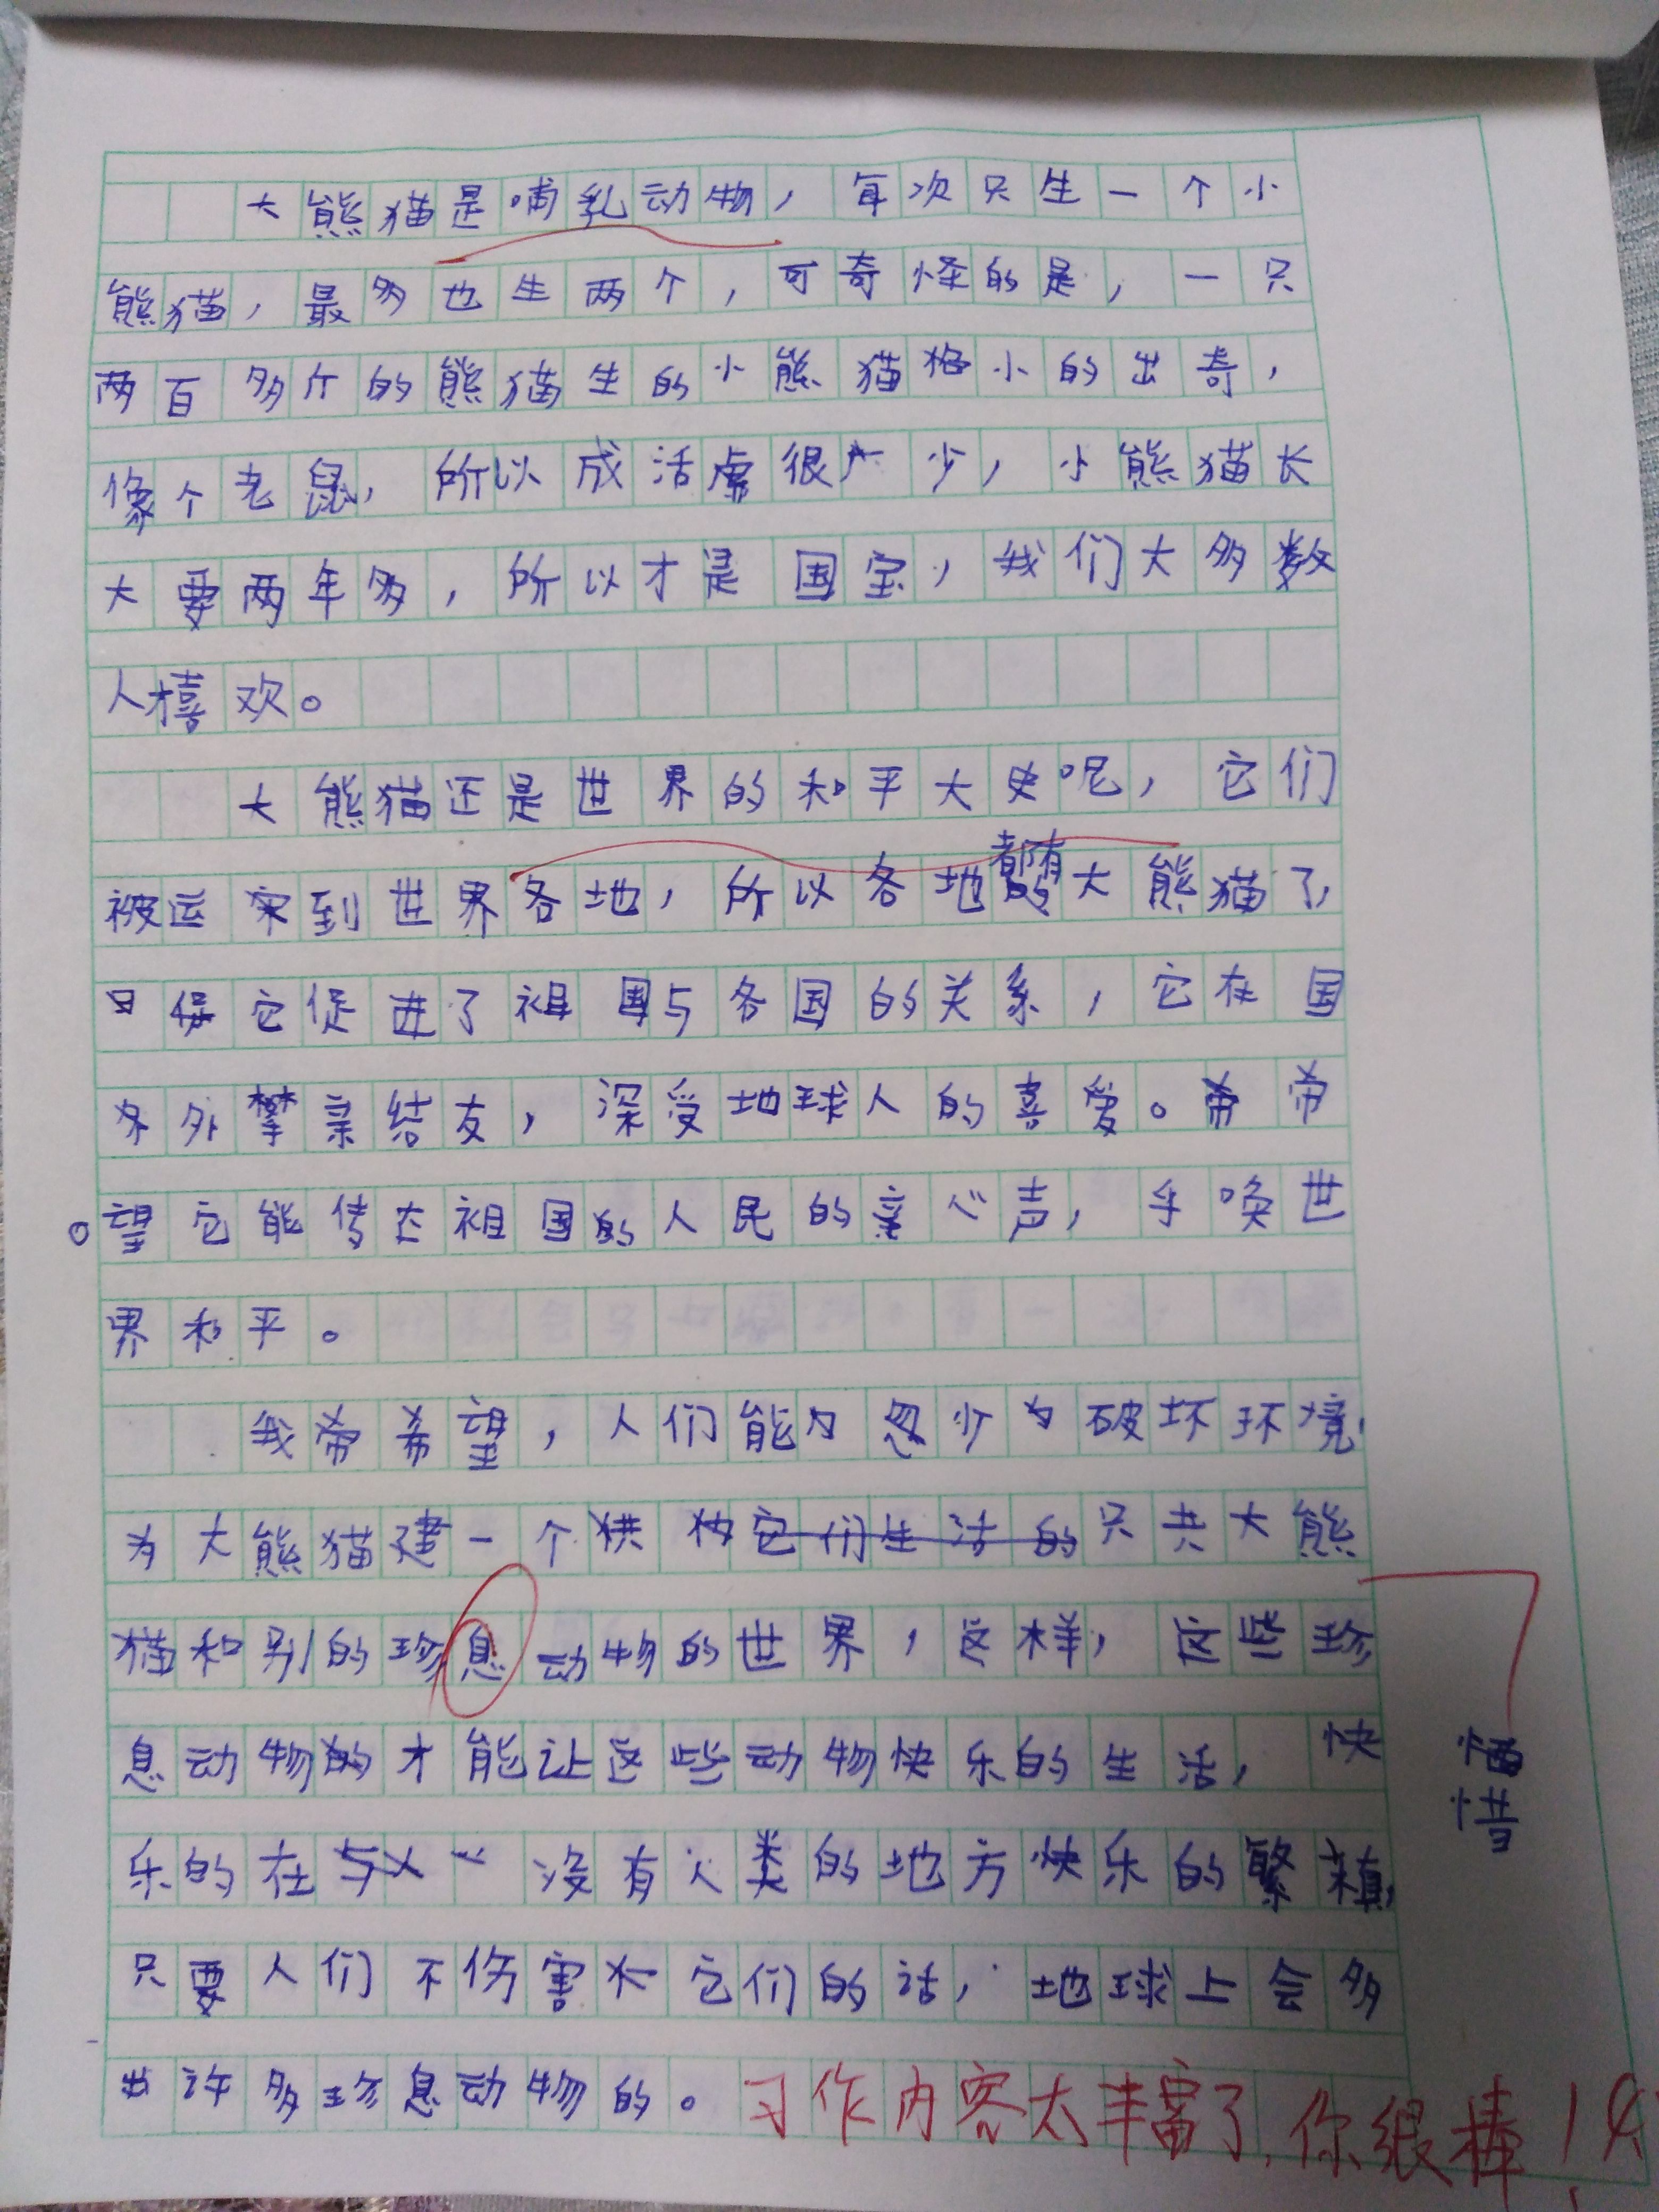 大熊猫是哺乳动物，每次只生一个小
熊猫，最多也生两个，可奇怪的是，一只
两百多斤的熊猫生的小熊猫格小的出奇，
像个老鼠，所以成活虏很少，小熊猫长
大要两年多，所以才是国宝，我们大多数
人喜欢。
大熊猫还是世界的和平大史呢，它们
被运到世界各地，所以各地都有大熊猫了，
它促进了祖国与各国的关系，它在国
外攀亲结友，深受地球人的喜爱。希
望它能传达祖国的人民的心声，乎唤世
界和平。
我希望，人们能少破坏环境，
为大熊猫建一个只共大熊
猫和别的珍息动物的世界，这样，这些珍
息动物才能让这些动物快乐的生活，快
乐的在没有人类的地方快乐的繁殖，
只要人们不伤害它们的话，地球上会多
出许多珍息动物的。
惜
习作内容太丰富了，你很棒！